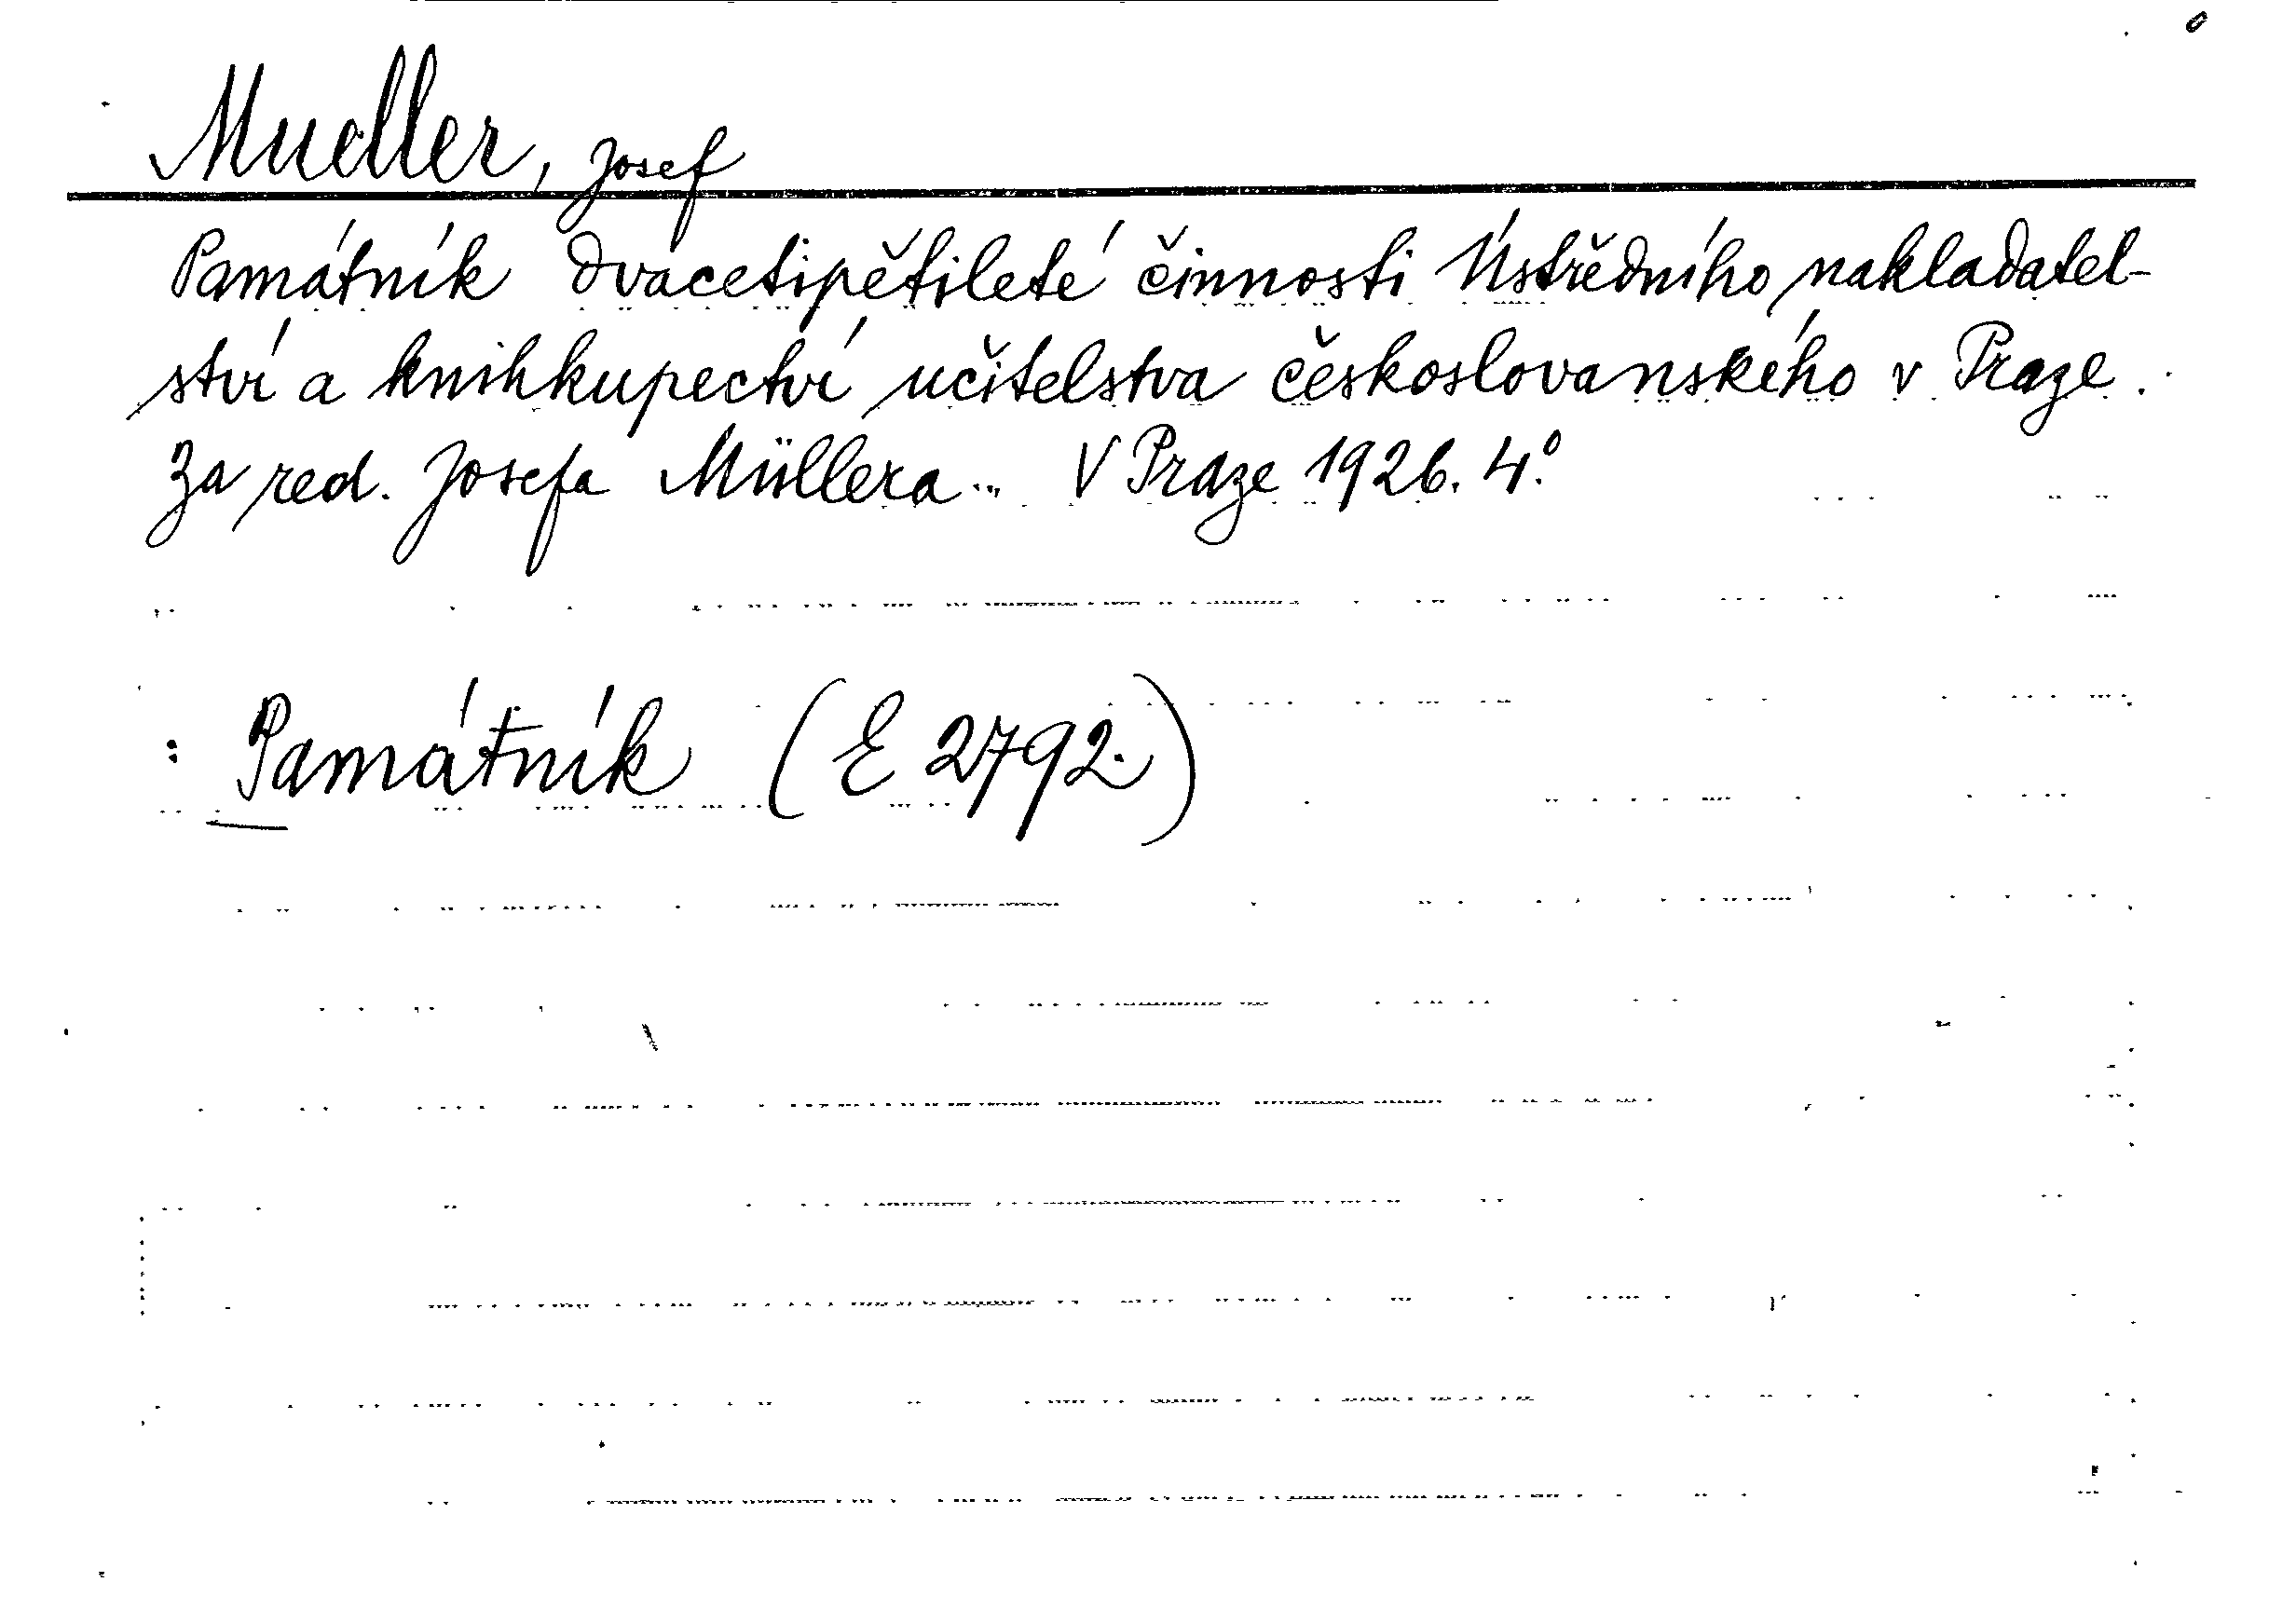 Mueller, Josef
Památník dvacetipětileté činnosti Ústředního nakladatel-
ství a knihkupectví učitelstva českoslovanského v Praze.
Za red. Josefa Müllera... V Praze 1926. 4.°
: Památník (E 2792.)